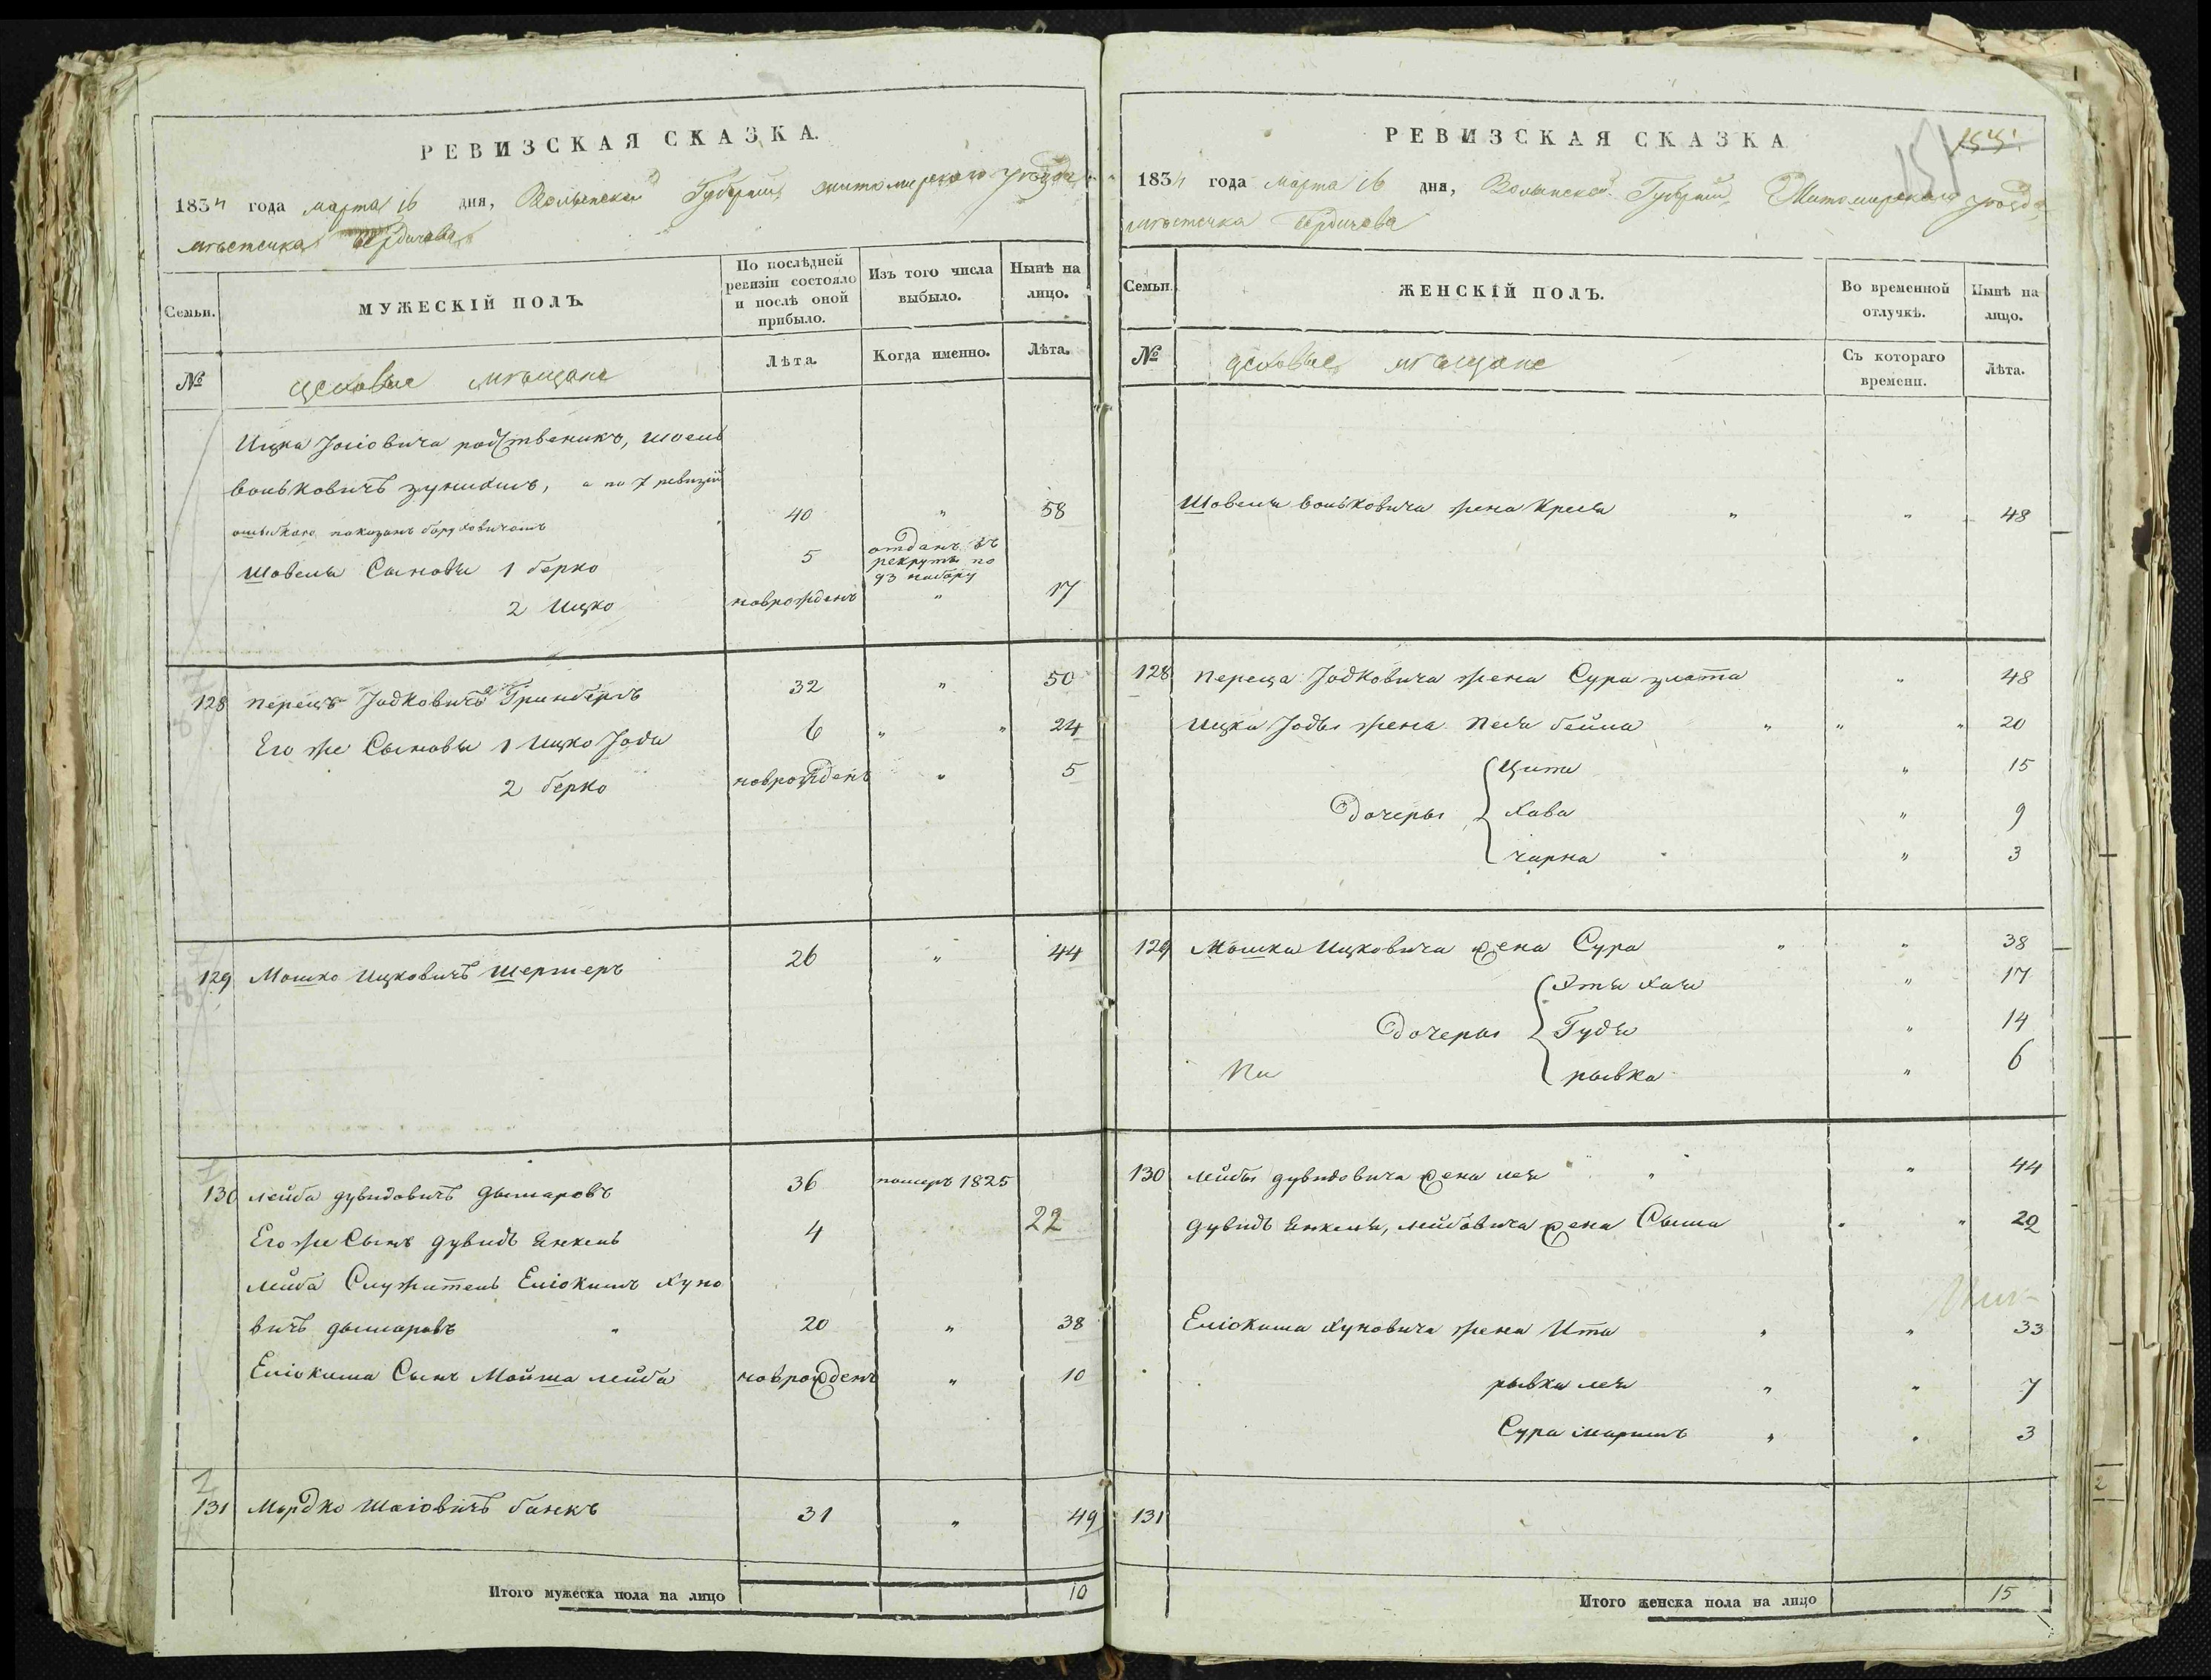 РЕВИЗСКАЯ СКАЗКА.
1834 года марта 16 дня, Волынской Губерніи Житомирскаго уѣзда
мѣстечка Бердичева
Семьи.
МУЖЕСКІЙ ПОЛЪ.
По послѣдней ревизіи состояло и послѣ оной прибыло.
Изъ того числа выбыло.
Нынѣ на лицо.
№
цеховые мѣщане
Лѣта.
Когда именно.
Лѣта.
Ицка Іосіовича родственикъ, Шоель
Вольковичъ, а по 7 ревизіи
ошибкою показанъ Боруховичомъ 40 " 58
Шовеля Сыновья 1 Берко 5 отданъ въ рекруты по 93 набору
2 Ицко новрожденъ " 17
128 Перецъ Іодковичъ Гринбергъ 32 " 50
Его же Сыновья 1 Ицко Іода 6 " " 24
2 Берко новрожденъ " 5
129 Мошко Ицковичъ Шертеръ 26 " 44
130 Лейба Дувидовичъ Дымаровъ 36 померъ 1825
Его же Сынъ Дувидъ Янкель 4 22
Лейба Служитель Еліокимъ Хуно
вичъ Дымаровъ " 20 " 38
Еліокима Сынъ Мойша Лейба новрожденъ " 10
131 Мордко Шаіовичъ Банкъ 31 " 49
Итого мужеска пола на лицо 10
РЕВИЗСКАЯ СКАЗКА
151
1834 года марта 16 дня, Волынской Губерніи Житомирскаго уѣзда
мѣстечка Бердичева
Семьи.
ЖЕНСКІЙ ПОЛЪ.
Во временной отлучкѣ.
Нынѣ на лицо.
№
цеховые мѣщане
Съ котораго времени.
Лѣта.
Шовеля Вольковича жена Крейя " " 48
128 Переца Іодковича жена Сура Злата " 48
Ицка Іоды жена Песя Бейла " " " 20
Цита " 15
Дочеры Хава " 9
Чарна " 3
129 Мошка Ицковича жена Сура " " 38
Этя Хая " 17
Дочеры Гудя " 14
Рывка " 6
130 Лейбы Дувидовича жена Лея " " 44
Дувидъ Янкеля, Лейбовича жена Сыма " " 22
Еліокима Хуновича жена Ита " " 33
Рывка Лея " " 7
Сура Маріямъ " " 3
131
Итого женска пола на лицо 15